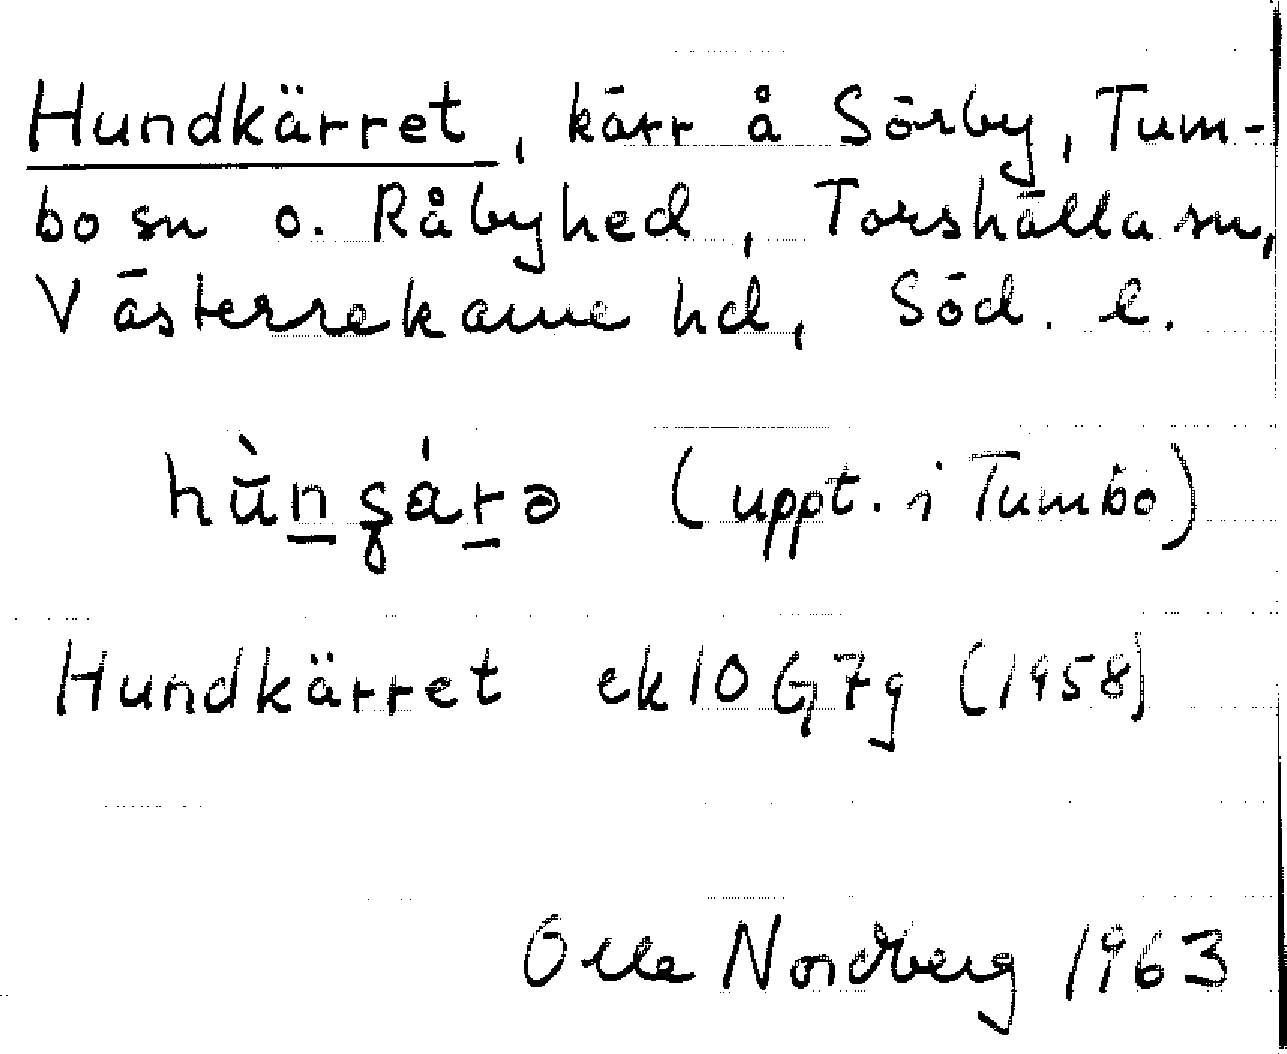 Hundkärret, kärr å Sörby, Tum-
bo sn o. Råbyhed, Torshälla sn,
Västerrekarne hd, Söd. l.
(uppt. i Tumbo)
Hundkärret ek 10 G 7g (1958)
Olle Nordberg 1963